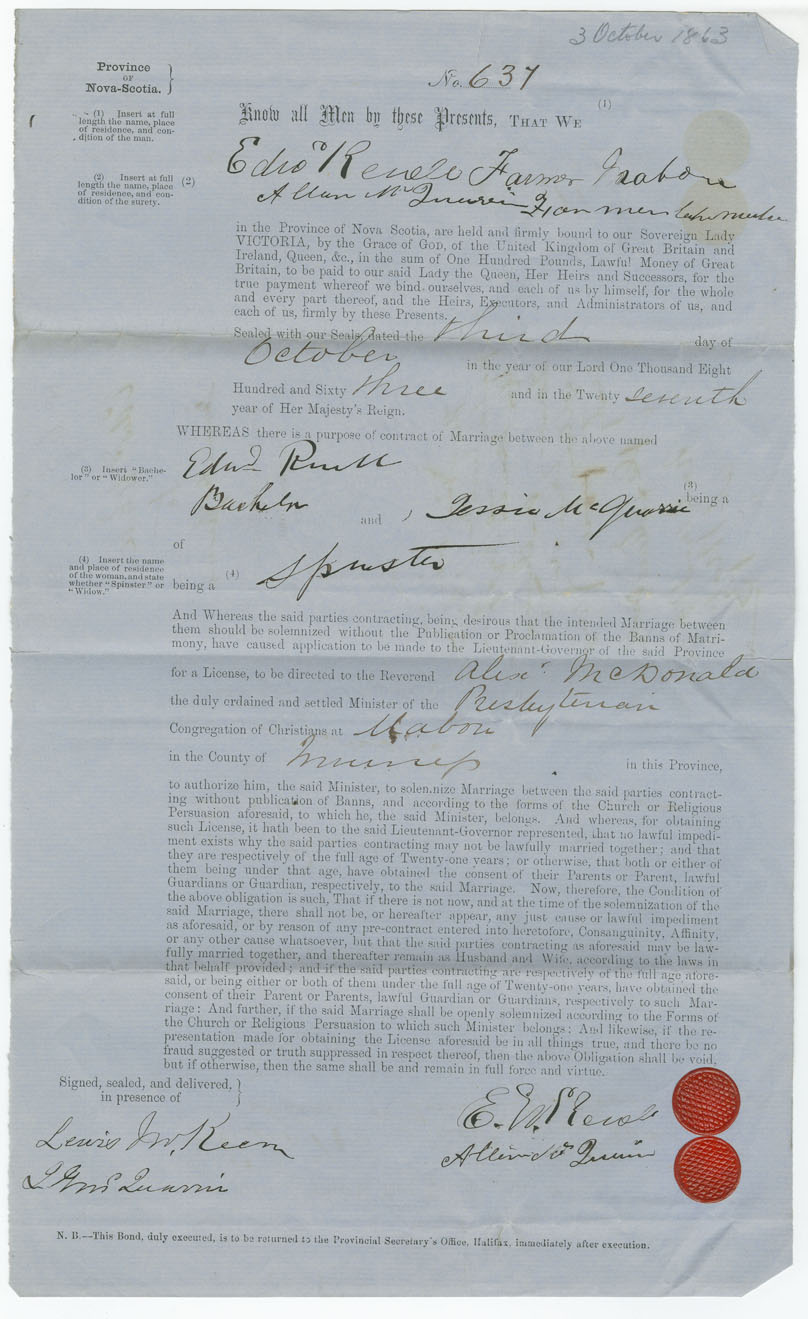 3 October 1863
Province
OF
Nova-Scotia.
No. 637
(1) Insert at full
length the name, place
of residence, and con-
dition of the man.
Know all Men by these Presents, THAT WE (1)
(2) Insert at full
length the name, place
of residence, and con-
dition of the surety.
(2)
Farmer Mabou
Allan
in the Province of Nova Scotia, are held and firmly bound to our Sovereign Lady
VICTORIA, by the Grace of GOD, of the United Kingdom of Great Britain and
Ireland, Queen, &c., in the sum of One Hundred Pounds, Lawful Money of Great
Britain, to be paid to our said Lady the Queen, Her Heirs and Successors, for the
true payment whereof we bind ourselves, and each of us by himself, for the whole
and every part thereof, and the Heirs, Executors, and Administrators of us, and
each of us, firmly by these Presents.
Sealed with our Seals, dated the third day of
October in the year of our Lord One Thousand Eight
Hundred and Sixty three and in the Twenty seventh
year of Her Majesty's Reign.
WHEREAS there is a purpose of contract of Marriage between the above named
(3) Insert "Bache-
lor" or "Widower."
Edwd
(3)
Bachelor being a
and Jessie McQuarrie
of
(4) Insert the name
and place of residence
of the woman, and state
whether "Spinster" or
"Widow."
being a (4) Spinster
And Whereas the said parties contracting, being desirous that the intended Marriage between
them should be solemnized without the Publication or Proclamation of the Banns of Matri-
mony, have caused application to be made to the Lieutenant-Governor of the said Province
for a License, to be directed to the Reverend Alexr McDonald
the duly ordained and settled Minister of the Presbyterian
Congregation of Christians at Mabou
in the County of Inverness in this Province,
to authorize him, the said Minister, to solemnize Marriage between the said parties contract-
ing without publication of Banns, and according to the forms of the Church or Religious
Persuasion aforesaid, to which he, the said Minister, belongs. And whereas, for obtaining
such License, it hath been to the said Lieutenant-Governor represented, that no lawful impedi-
ment exists why the said parties contracting may not be lawfully married together; and that
they are respectively of the full age of Twenty-one years; or otherwise, that both or either of
them being under that age, have obtained the consent of their Parents or Parent, lawful
Guardians or Guardian, respectively, to the said Marriage. Now, therefore, the Condition of
the above obligation is such, That if there is not now, and at the time of the solemnization of the
said Marriage, there shall not be, or hereafter appear, any just cause or lawful impediment
as aforesaid, or by reason of any pre-contract entered into heretofore, Consanguinity, Affinity,
or any other cause whatsoever, but that the said parties contracting as aforesaid may be law-
fully married together, and thereafter remain as Husband and Wife, according to the laws in
that behalf provided; and if the said parties contracting are respectively of the full age afore-
said, or being either or both of them under the full age of Twenty-one years, have obtained the
consent of their Parent or Parents, lawful Guardian or Guardians, respectively to such Mar-
riage: And further, if the said Marriage shall be openly solemnized according to the Forms of
the Church or Religious Persuasion to which such Minister belongs: And likewise, if the re-
presentation made for obtaining the License aforesaid be in all things true, and there be no
fraud suggested or truth suppressed in respect thereof, then the above Obligation shall be void,
but if otherwise, then the same shall be and remain in full force and virtue.
Signed, sealed, and delivered,
in presence of
Lewis McKeen
N. B.--This Bond, duly executed, is to be returned to the Provincial Secretary's Office, Halifax, immediately after execution.